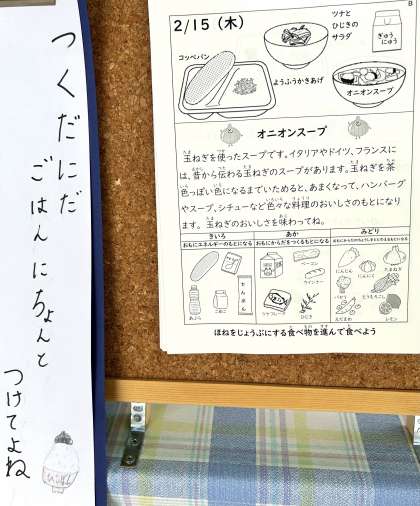 つくだにだ
ごはんにちょんと
つけてよね
ごはん
B
2/15（木）
ツナと
ひじきの
サラダ
ぎゅう
にゅう
コッペパン
ようふうかきあげ
オニオンスープ
オニオンスープ
玉ねぎを使ったスープです。イタリアやドイツ、フランスに
は、昔から伝わる玉ねぎのスープがあります。玉ねぎを茶
色っぽい色になるまでいためると、あまくなって、ハンバーグ
やスープ、シチューなど色々な料理のおいしさのもとになり
ます。玉ねぎのおいしさを味わってね。
きいろ
あか
みどり
おもにエネルギーのもとになる
おもにからだをつくるもとになる
おもにからだのちょうしをととのえるもとになる
あぶら
こめこ
でんぷん
ベーコン
ウインナー
ツナフレーク
ひじき
にんじん
にんにく
たまねぎ
パセリ
とうもろこし
えだまめ
レモン
ほねをじょうぶにする食べ物を進んで食べよう